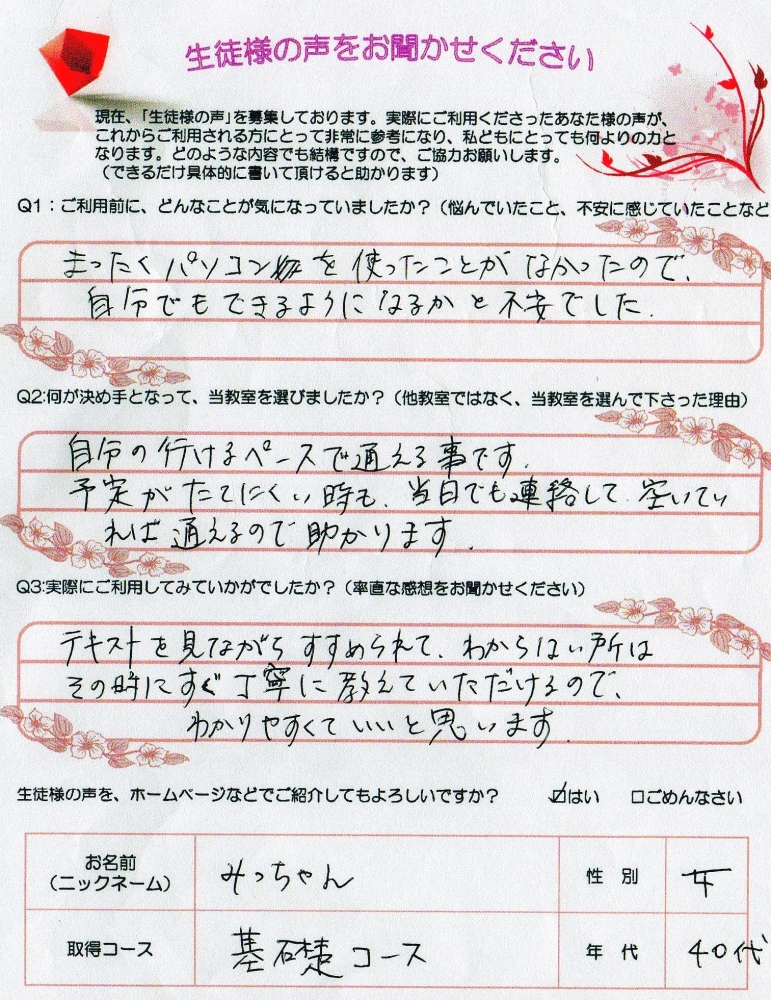 生徒様の声をお聞かせください
現在、「生徒様の声」を募集しております。実際にご利用くださったあなた様の声が、
これからご利用される方にとって非常に参考になり、私どもにとっても何よりの力と
なります。どのような内容でも結構ですので、ご協力お願いします。
（できるだけ具体的に書いて頂けると助かります）
Q1：ご利用前に、どんなことが気になっていましたか？（悩んでいたこと、不安に感じていたことなど
まったくパソコンを使ったことがなかったので、
自分でもできるようになるかと不安でした.
Q2:何が決め手となって、当教室を選びましたか？（他教室ではなく、当教室を選んで下さった理由）
自分の行けるペースで通える事です.
予定がたてにくい時も、当日でも連絡して、空いてい
れば通えるので助かります.
Q3:実際にご利用してみていかがでしたか？（率直な感想をお聞かせください）
テキストを見ながらすすめられて、わからない所は
その時にすぐ丁寧に教えていただけるので、
わかりやすくていいと思います.
生徒様の声を、ホームページなどでご紹介してもよろしいですか？ ☑はい □ごめんなさい
お名前
（ニックネーム） みっちゃん 性別 女
取得コース 基礎コース 年代 40代